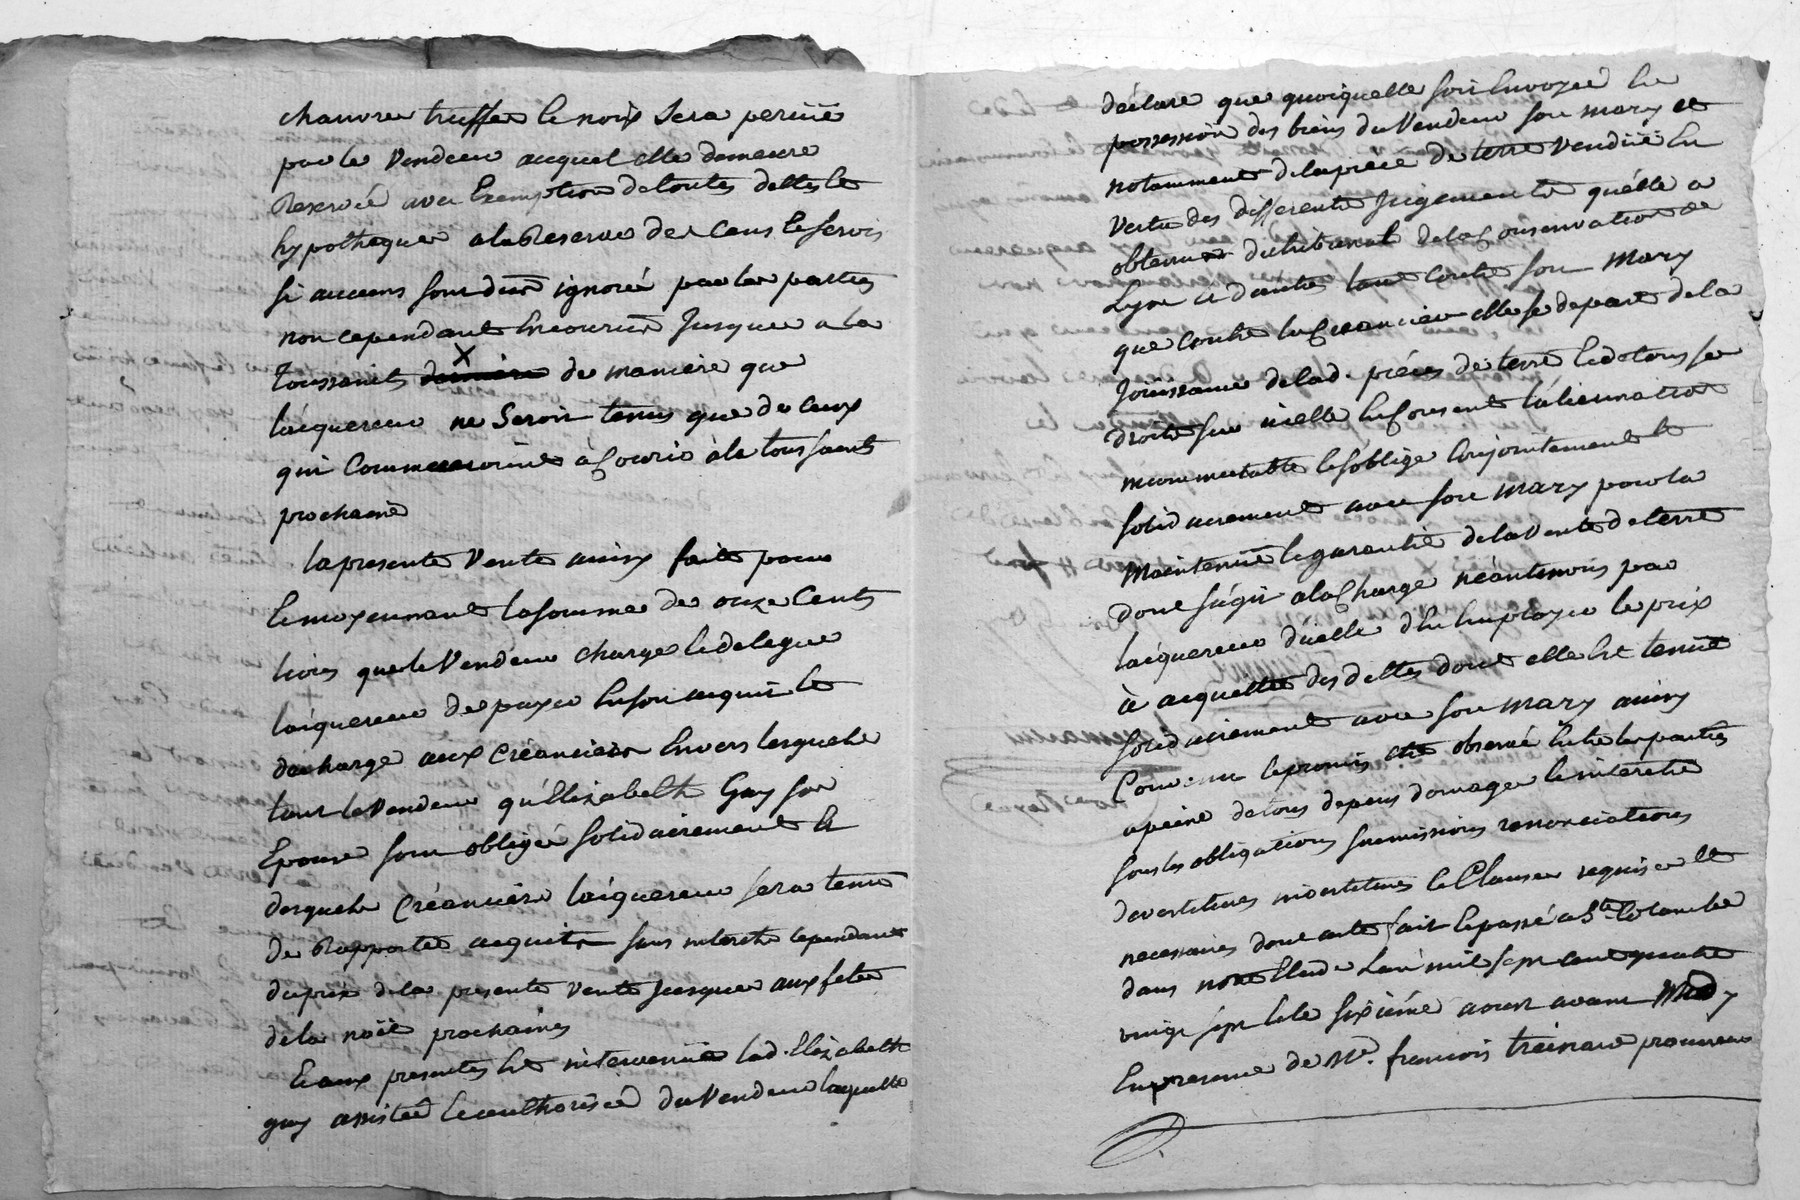 chanvre truffes le noix Sera perçüe
par le Vendeur auquel elle demeure
Reservée avec Exemption de toutes dettes et
hypotheques a la Reserve des Cens Et servis
si aucuns sont dus ignoré par les parties
non cependant Encourus Jusques a la
Toussaints de maniere que
lacquereur ne Seroit tenus que de ceux
qui Commenceroint à Courir à la toussaints
prochaine
la presente Vente ainsy faite pour
Et moyennant la somme de onze Cents
livres que le Vendeur charge Et delegue
lacquereur de payer En son acquit Et
decharge aux Créanciers Envers lesquels
tant le Vendeur qu'Elizabeth Guy son
Epouse sont obligés solidairement Et
desquels Créanciers lacquereur sera tenu
de Rapporter acquits sans interets cependant
du prix de la presente Vente jusques aux fetes
de la noël prochaines
Et aux presentes Est intervenüe lad. Elizabeth
guy assistée Et authorisée du Vendeur laquelle
declare que quoiquelle soit Envoyée En
possession des biens du Vendeur son mary et
notamment de la piece de terre Vendüe En
Vertu des differents jugements quelle a
obtenus du tribunal de la Conservation de
Lyon et d'autres tant contre son Mary
que contre les Creanciers elle se depart de la
Joüissance de lad. piéces de terre Et de tous ses
droits sur icelle En Consent l'alienation
incommutable Et s'oblige Conjointement Et
solidairement avec son mary pour la
Maintenüe Et garentie de la Vente de terre
dont s'agit a la Charge néantmoins par
lacquereur d'icelle d'En Employer le prix
à acquitter des dettes dont elle Est tenüe
solidairement avec son mary ainsy
Convenu Et promis etre observé Entre les parties
a peine de tous depens domages Et interets
sous les obligations soumissions renonciations
devestitures investitures Et Clauses requises Et
necessaires dont acte fait Et passé a Ste. Colombe
dans notre Etude Lan mil sept cent quatre
vingt sept Et le sixième aoust avant Midy
En presence de Me. françois treinard procureur